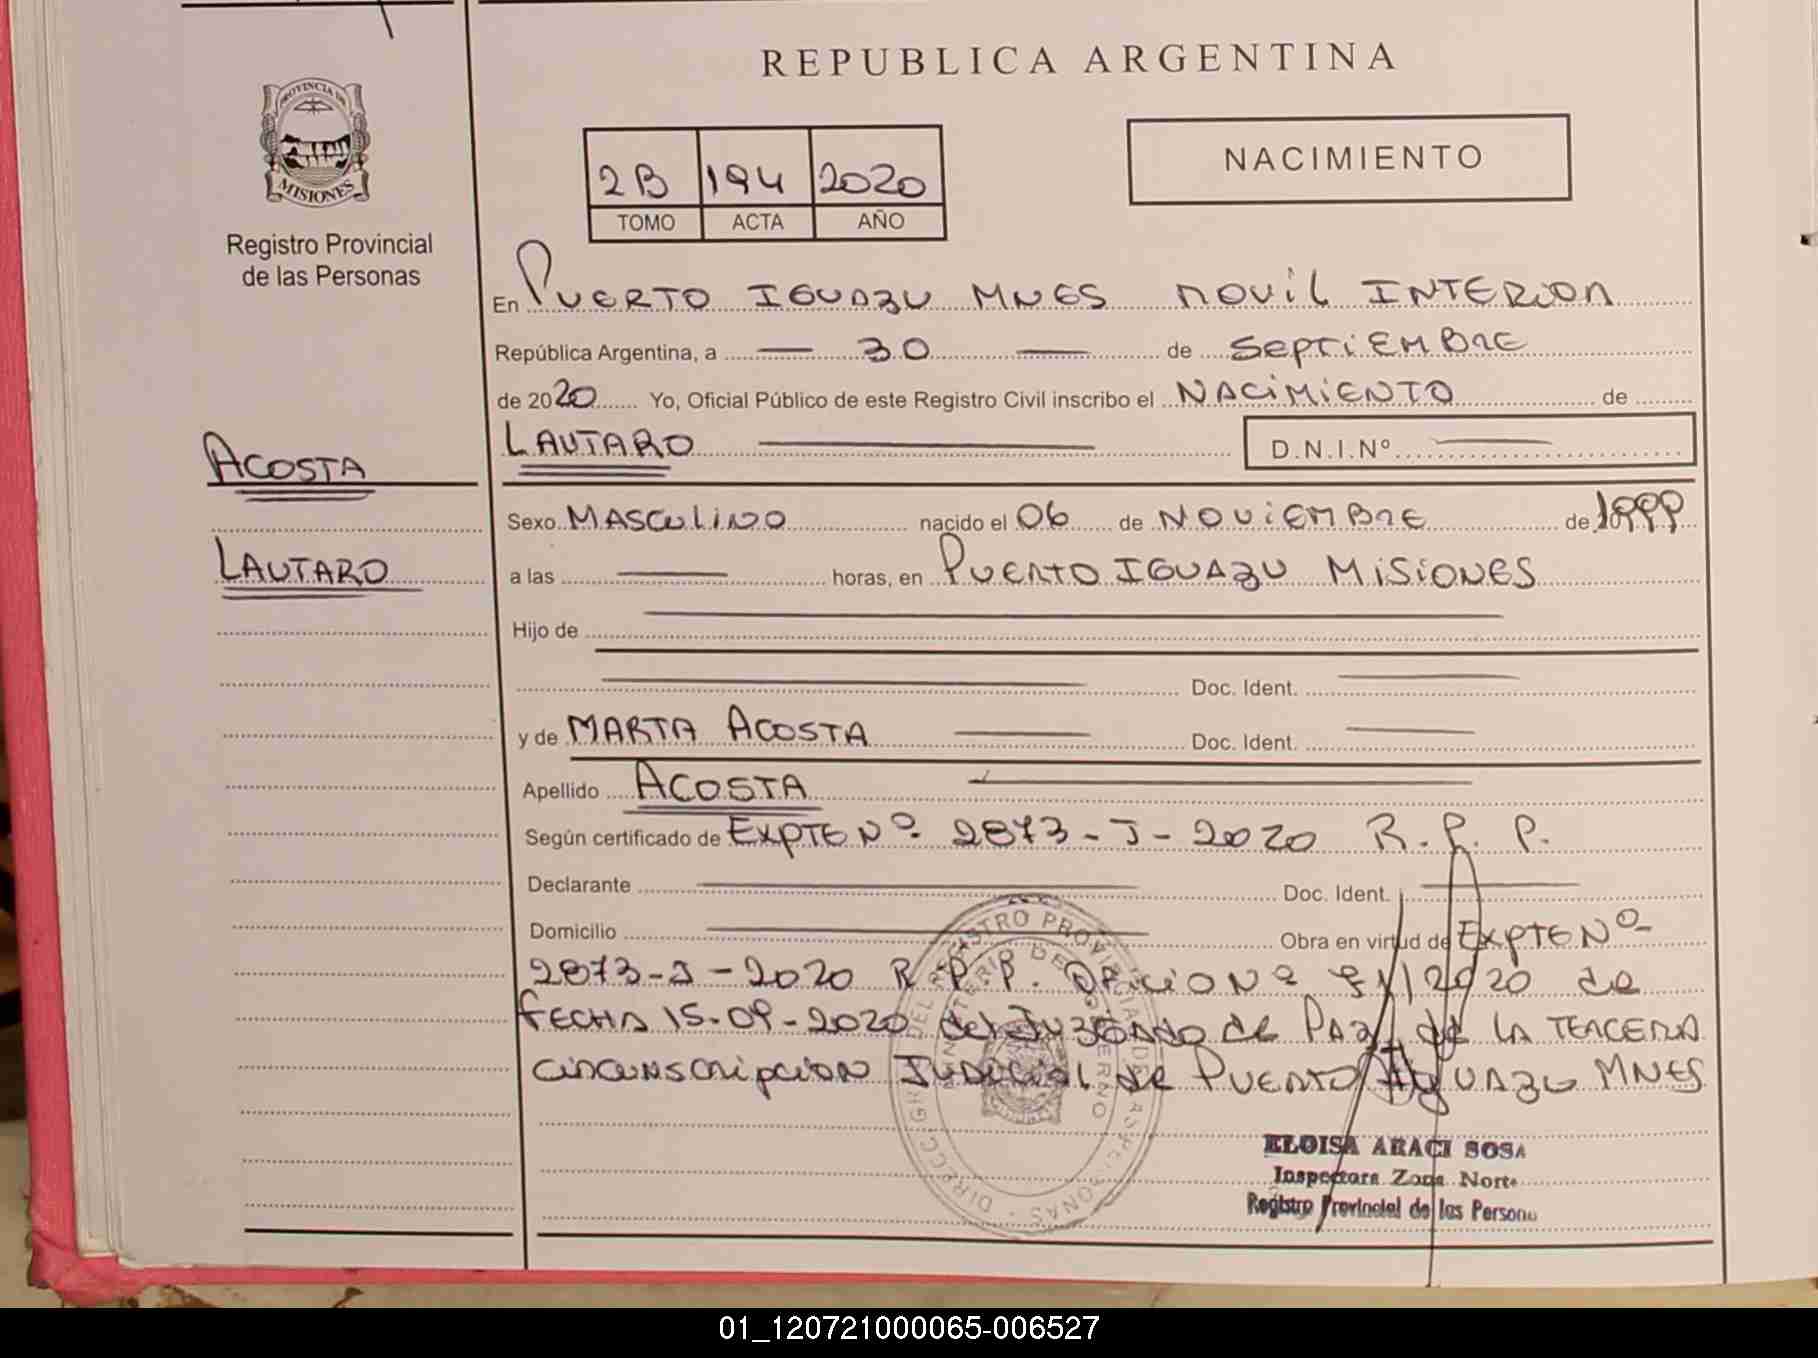 REPUBLICA ARGENTINA
PROVINCIA DE
MISIONES
Registro Provincial
de las Personas
2B 194 2020
TOMO ACTA AÑO
NACIMIENTO
En PUERTO IGUAZU MNES MOVIL INTERIOR
República Argentina, a — 30 — de SEPTIEMBRE
de 2020 Yo, Oficial Público de este Registro Civil inscribo el NACIMIENTO de
LAUTARO D.N.I.Nº
ACOSTA
LAUTARO
Sexo MASCULINO nacido el 06 de NOVIEMBRE de 1999
a las — horas, en PUERTO IGUAZU MISIONES
Hijo de
Doc. Ident.
y de MARTA ACOSTA — Doc. Ident.
Apellido ACOSTA
Según certificado de EXPTE Nº 2873-J-2020 R.P.P.
Declarante Doc. Ident.
Domicilio Obra en virtud de EXPTE Nº
2873-J-2020 R.P.P. OFICIO Nº /2020 de
FECHA 15-09-2020 del JUZGADO de PAZ de LA TERCERA
CIRCUNSCRIPCION JUDICIAL de PUERTO IGUAZU MNES
ELOISA ARACI SOSA
Inspectora Zona Norte
Registro Provincial de las Persona
01_120721000065-006527